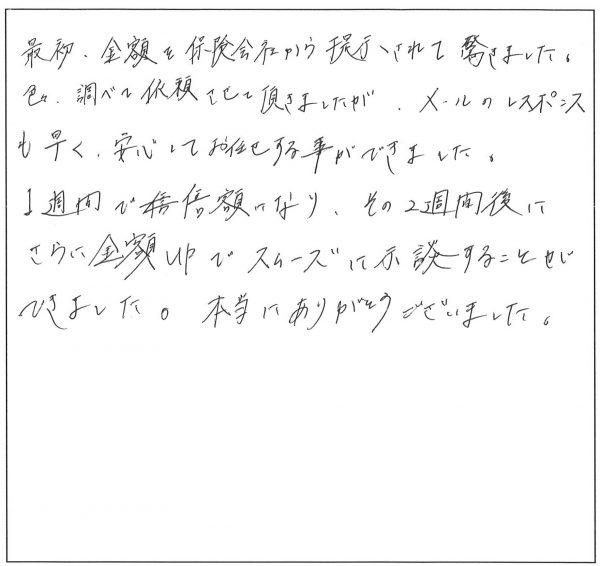 最初、金額を保険会社から提示されて驚きました。
色々、調べて依頼させて頂きましたが、メールのレスポンス
も早く、安心してお任せする事ができました。
1週間で倍額になり、その2週間後に
さらに金額UPでスムーズに示談することが
できました。本当にありがとうございました。